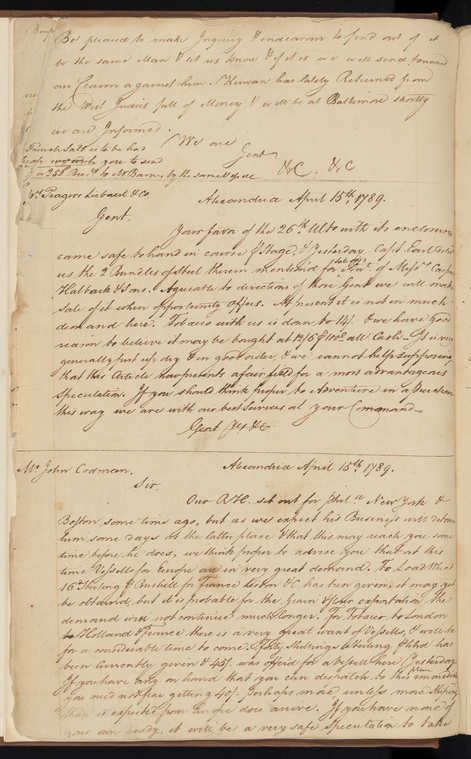 Be pleased to make Inquiry & endeavour to find out if it
be the same Man & let us know & if it is we will send forward
our Claim against him. Kirwan has lately Returned from
the West Indies full of Money & will be at Baltimore shortly
we are Informed.
We are
Gent
&C. &C
if French Salt is to be had
wish you to send
p 250 Bus.ls to Mr Barn. by the same Vessel
Alexandria April 15th 1789.
Gent.
Your favor of the 26th Ulto with its enclosures
came safe to hand in course of Stage, & Yesterday Capt Earl
us the 2 Bundles of Steel therein mentioned for of Messrs
& Sons. Agreeable to directions of those Gent we will make
Sale of it when opportunity offers. At present it is not in much
demand here. Tobacco with us is down to 14/. & we have good
reason to believe it may be bought at all Cash. It is very
generally put up dry & in good order, & we cannot help supposing
that this Article now presents a fair field for a most advantageous
Speculation. If you should think proper to Adventure in a Purchase
this way we are with our best Services at your Command
Gent &c
Mr John Codman, Alexandria April 15th 1789.
Sir,
Our set out for New York &
Boston some time ago, but as we expect his Business will detain
him some days at the latter place & that this may reach you some
time before he does, we think proper to advise you that at this
time Vessells for Europe are in very great demand. To Load Wheat
Sterling for France has been given, it may yet
be obtained, but it is probable for the Grain exportation the
demand will not continue much longer. For Tobacco to London
to Holland & France there is a very great want of Vessells, & will be
for a considerable time to come. Fifty Shillings Sterling hhd has
been currently given & 45/. was offered for a Vessell here Yesterday
If you have any on hand that you can despatch to this immediately
you need not fear getting 40/. perhaps more unless more Shipping
than is expected from Europe does arrive. If you have none of
your own ready, it will be a very safe Speculation to take